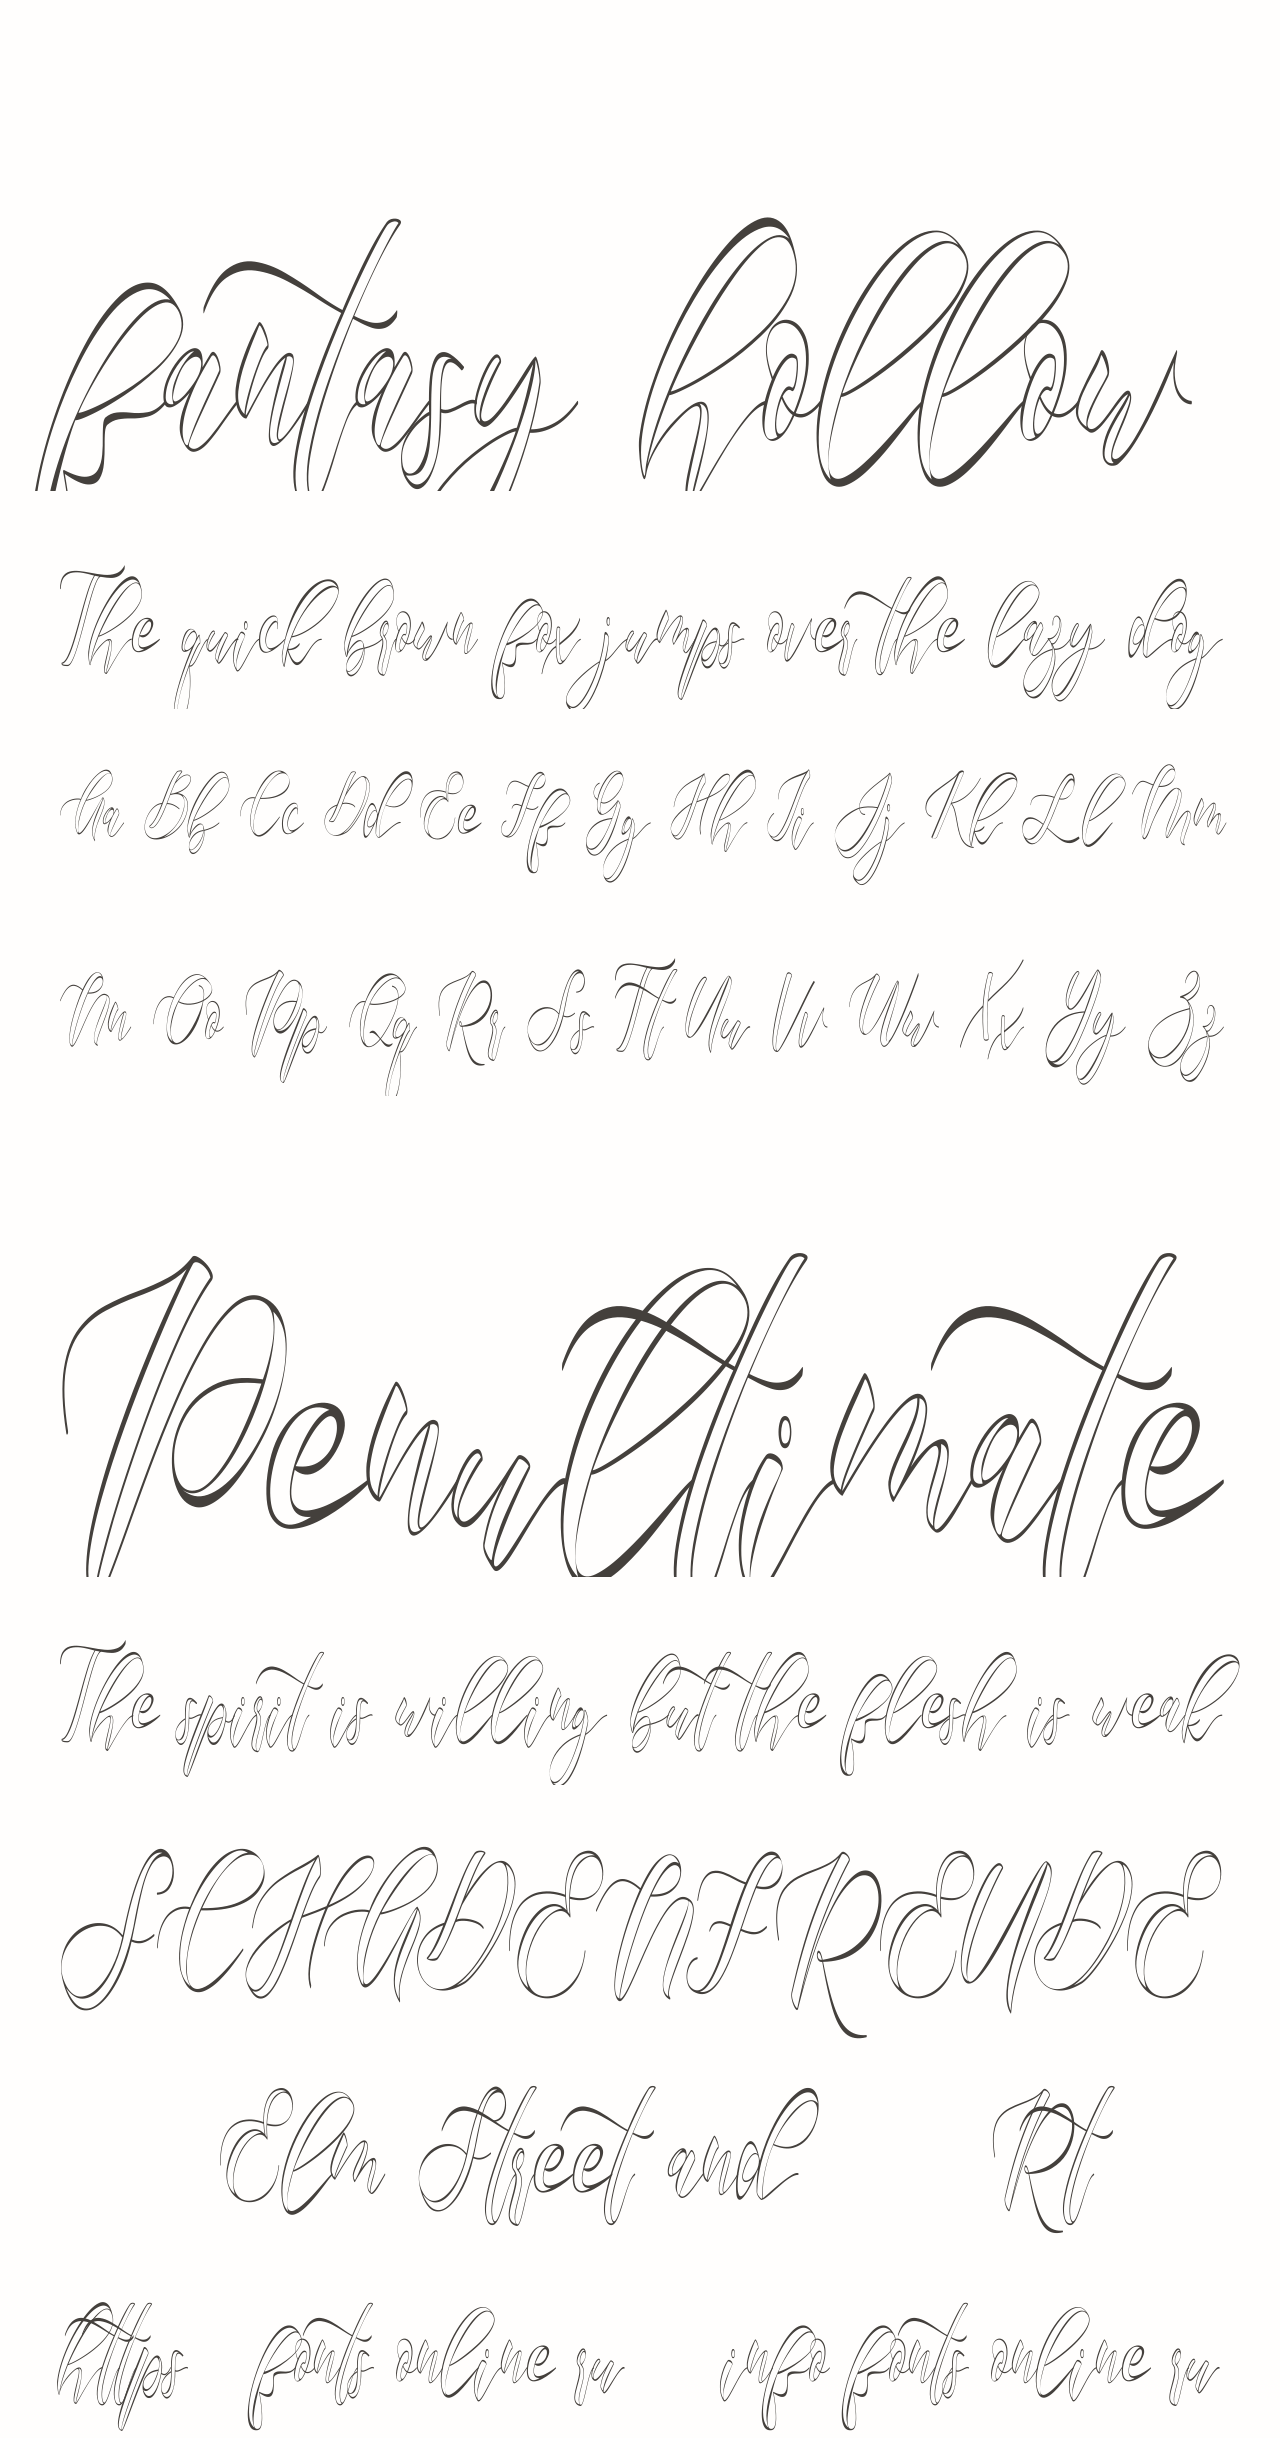 fantasy hollow
The quick brown fox jumps over the lazy dog
Aa Bb Cc Dd Ee Ff Gg Hh Ii Jj Kk Ll Mm
Nn Oo Pp Qq Rr Ss Tt Uu Vv Ww Xx Yy Zz
Penultimate
The spirit is willing but the flesh is weak
SCHADENFREUDE
Elm Street and Rt
https fonts online ru info fonts online ru